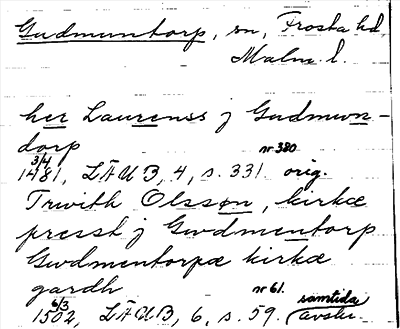 Gudmuntorp, sn, Frosta hd,
Malm. l.
her Laurenss j Gudmwn-
dorp nr 380
3/4 1481, LÄUB, 4, s. 331 orig.
Trwith Olssøn, kirkæ
pressth j Gwdmentorp
Gwdmentorpæ kirkæ
gardh nr 61. samtida
6/3 1502, LÄUB, 6, s. 59. (avskr.